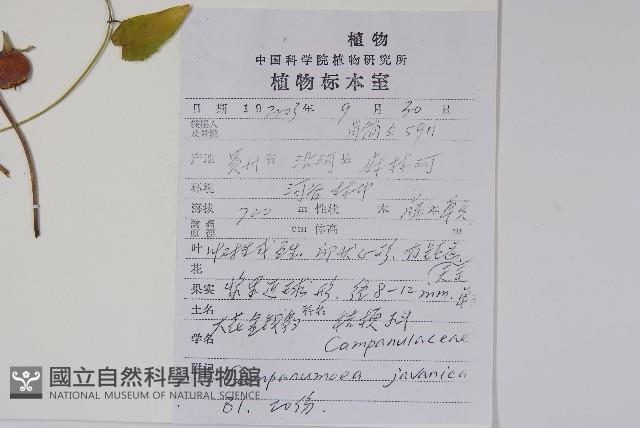 植物
中国科学院植物研究所
植物标本室
日期 19 2003年 9月 30日
采集人及号数 5911
产地 贵州省 沿河县 麻林河
环境 河谷林中
海拔 720 m 性状 木 藤本
胸高直径 cm 体高 m
叶 叶对生或互生. 卵状心形,
花
果实 浆果近球形. 径8-12mm.
土名 大花金钱豹 科名 桔梗科
学名 Campanulaceae
附记 Campanumoea javanica
Bl. 20份.
國立自然科學博物館
NATIONAL MUSEUM OF NATURAL SCIENCE